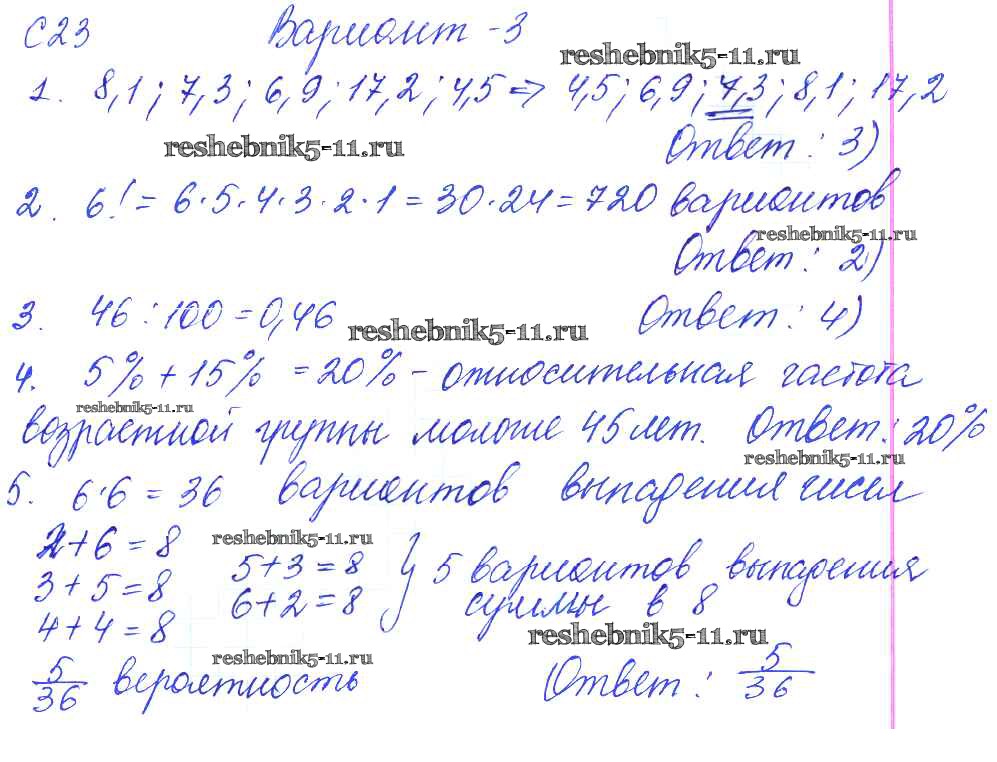 С23 Вариант - 3
reshebnik5-11.ru
1. 8,1; 7,3; 6,9; 17,2; 4,5 ⇒ 4,5; 6,9; 7,3; 8,1; 17,2
reshebnik5-11.ru Ответ: 3)
2. 6! = 6·5·4·3·2·1 = 30·24 = 720 вариантов
reshebnik5-11.ru
Ответ: 2)
3. 46 : 100 = 0,46 reshebnik5-11.ru Ответ: 4)
4. 5% + 15% = 20% - относительная частота
reshebnik5-11.ru
возрастной группы моложе 45 лет. Ответ: 20%
reshebnik5-11.ru
5. 6·6 = 36 вариантов выпадения чисел
2+6=8 reshebnik5-11.ru
3+5=8 5+3=8 } 5 вариантов выпадения
4+4=8 6+2=8 суммы в 8
reshebnik5-11.ru
reshebnik5-11.ru
5/36 вероятность Ответ: 5/36